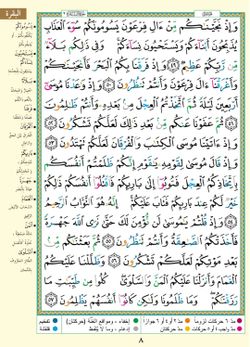 البقرة
وَإِذْ نَجَّيْنَٰكُم مِّنْ ءَالِ فِرْعَوْنَ يَسُومُونَكُمْ سُوٓءَ ٱلْعَذَابِ
يُذَبِّحُونَ أَبْنَآءَكُمْ وَيَسْتَحْيُونَ نِسَآءَكُمْ وَفِى ذَٰلِكُم بَلَآءٌ
مِّن رَّبِّكُمْ عَظِيمٌ ٤٩ وَإِذْ فَرَقْنَا بِكُمُ ٱلْبَحْرَ فَأَنجَيْنَٰكُمْ
وَأَغْرَقْنَآ ءَالَ فِرْعَوْنَ وَأَنتُمْ تَنظُرُونَ ٥٠ وَإِذْ وَٰعَدْنَا مُوسَىٰٓ
أَرْبَعِينَ لَيْلَةً ثُمَّ ٱتَّخَذْتُمُ ٱلْعِجْلَ مِنۢ بَعْدِهِۦ وَأَنتُمْ ظَٰلِمُونَ
٥١ ثُمَّ عَفَوْنَا عَنكُم مِّنۢ بَعْدِ ذَٰلِكَ لَعَلَّكُمْ تَشْكُرُونَ
٥٢ وَإِذْ ءَاتَيْنَا مُوسَى ٱلْكِتَٰبَ وَٱلْفُرْقَانَ لَعَلَّكُمْ تَهْتَدُونَ
٥٣ وَإِذْ قَالَ مُوسَىٰ لِقَوْمِهِۦ يَٰقَوْمِ إِنَّكُمْ ظَلَمْتُمْ أَنفُسَكُم
بِٱتِّخَاذِكُمُ ٱلْعِجْلَ فَتُوبُوٓا۟ إِلَىٰ بَارِئِكُمْ فَٱقْتُلُوٓا۟ أَنفُسَكُمْ
ذَٰلِكُمْ خَيْرٌ لَّكُمْ عِندَ بَارِئِكُمْ فَتَابَ عَلَيْكُمْ إِنَّهُۥ هُوَ ٱلتَّوَّابُ ٱلرَّحِيمُ
٥٤ وَإِذْ قُلْتُمْ يَٰمُوسَىٰ لَن نُّؤْمِنَ لَكَ حَتَّىٰ نَرَى ٱللَّهَ جَهْرَةً
فَأَخَذَتْكُمُ ٱلصَّٰعِقَةُ وَأَنتُمْ تَنظُرُونَ ٥٥ ثُمَّ بَعَثْنَٰكُم مِّنۢ
بَعْدِ مَوْتِكُمْ لَعَلَّكُمْ تَشْكُرُونَ ٥٦ وَظَلَّلْنَا عَلَيْكُمُ
ٱلْغَمَامَ وَأَنزَلْنَا عَلَيْكُمُ ٱلْمَنَّ وَٱلسَّلْوَىٰ كُلُوا۟ مِن طَيِّبَٰتِ مَا
رَزَقْنَٰكُمْ وَمَا ظَلَمُونَا وَلَٰكِن كَانُوٓا۟ أَنفُسَهُمْ يَظْلِمُونَ ٥٧
٨